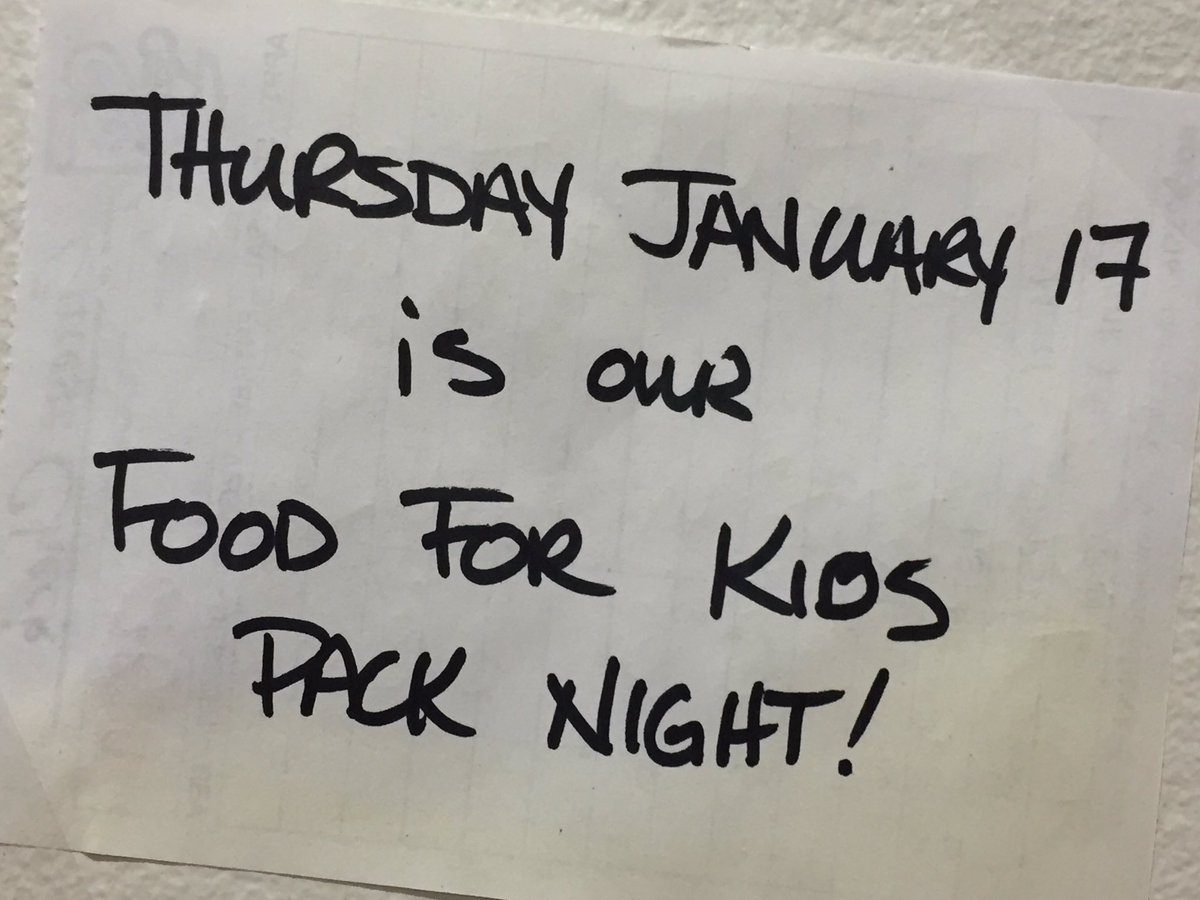 THURSDAY JANUARY 17
is OUR
FOOD FOR KIDS
PACK NIGHT!